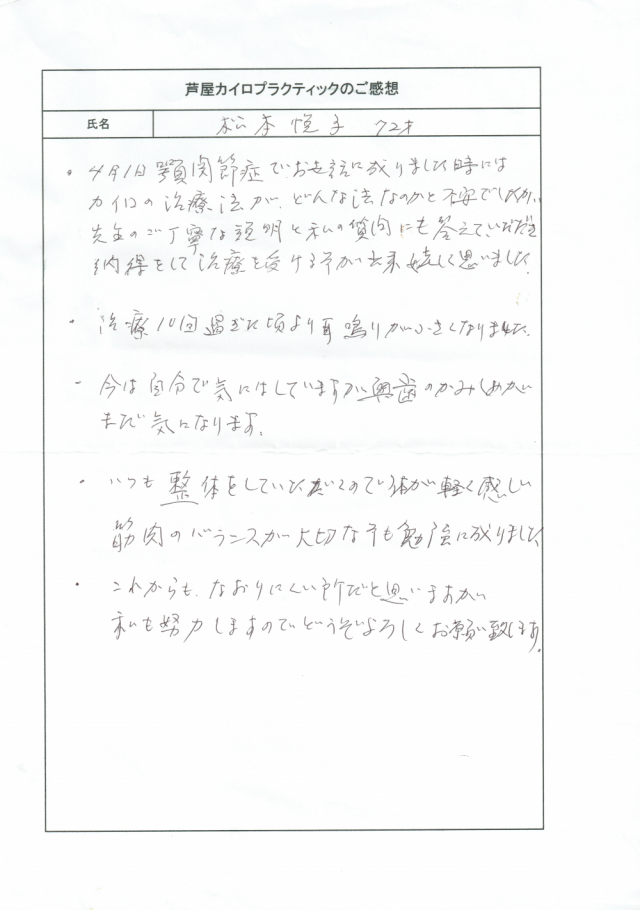 芦屋カイロプラクティックのご感想
氏名 松本悦子 72才
・4月1日顎関節症でお世話に成りました時には
カイロの治療法が、どんな法なのかと不安でしたが、
先生のご丁寧な説明と私の質問にも答えていただき
納得をして治療を受ける事が出来嬉しく思いました。
・治療10回過ぎた頃より耳鳴りが小さくなりました。
・今は自分で気にはしていますが奥歯のかみしめが
まだ気になります。
・いつも整体をしていただくので体が軽く感じ
筋肉のバランスが大切な事も勉強に成りました
・これからも、なおりにくい所だと思いますが
私も努力しますのでどうぞよろしくお願い致します。